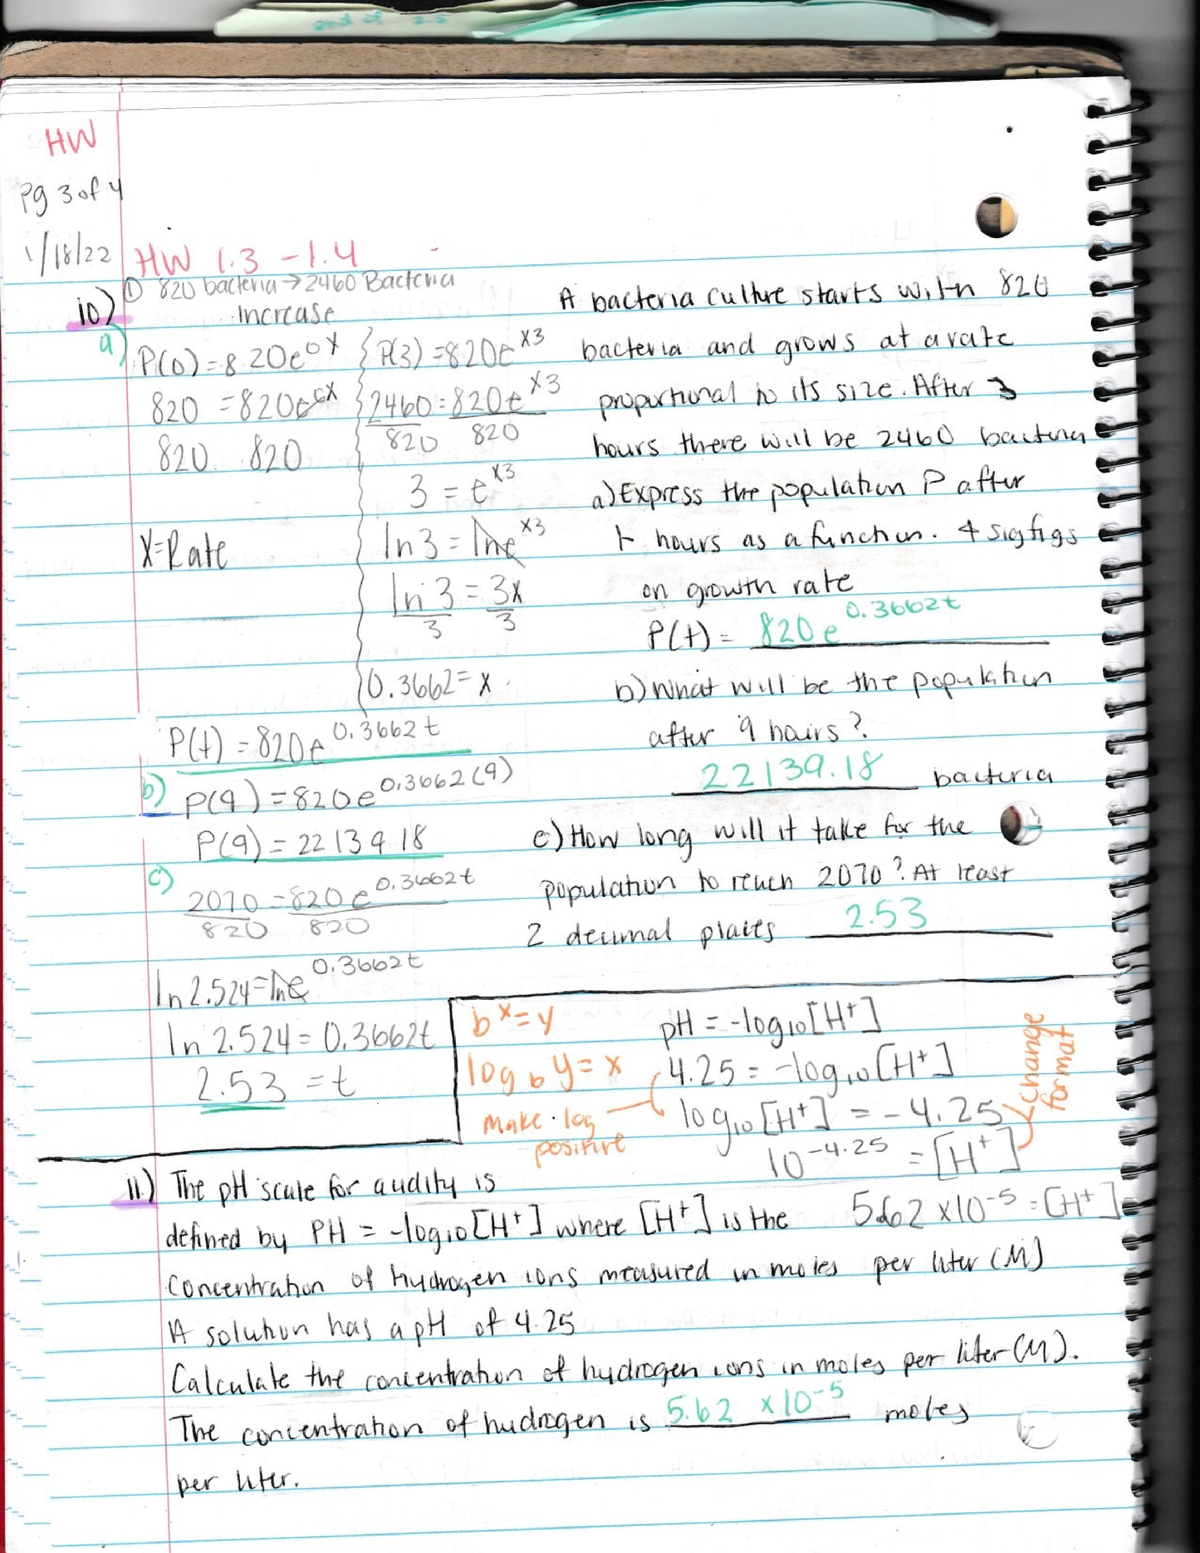 end of 2.5
HW
Pg 3 of 4
1/18/22
HW 1.3 - 1.4
① 820 bacteria → 2460 Bacteria
increase
10)
a)
P(0) = 820e^0x
820 = 820e^0x
820 820
X=Rate
P(3) = 820e^x3
2460 = 820e^x3
820 820
3 = e^x3
ln3 = lne^x3
ln 3 = 3x
3 3
0.3662 = x
P(t) = 820e^0.3662t
b) P(9) = 820e^0.3662(9)
P(9) = 22139.18
c)
2070 = 820e^0.3662t
820 820
ln 2.524 = lne^0.3662t
ln 2.524 = 0.3662t
2.53 = t
A bacteria culture starts with 820
bacteria and grows at a rate
proportional to its size. After 3
hours there will be 2460 bacteria
a) Express the population P after
t hours as a function. 4 sig figs
on growth rate
P(t) = 820e^0.3662t
b) What will be the population
after 9 hours?
22139.18 bacteria
c) How long will it take for the
population to reach 2070? At least
2 decimal places 2.53
b^x = y
log_b y = x
make log
positive
pH = -log10[H+]
4.25 = -log10[H+]
log10[H+] = -4.25
10^-4.25 = [H+]
change
format
5.62 x10^-5 = [H+]
11.) The pH scale for acidity is
defined by PH = -log10[H+] where [H+] is the
concentration of hydrogen ions measured in moles per liter (M)
A solution has a pH of 4.25
Calculate the concentration of hydrogen ions in moles per liter (M).
The concentration of hudrogen is 5.62 x10^-5 moles
per liter.